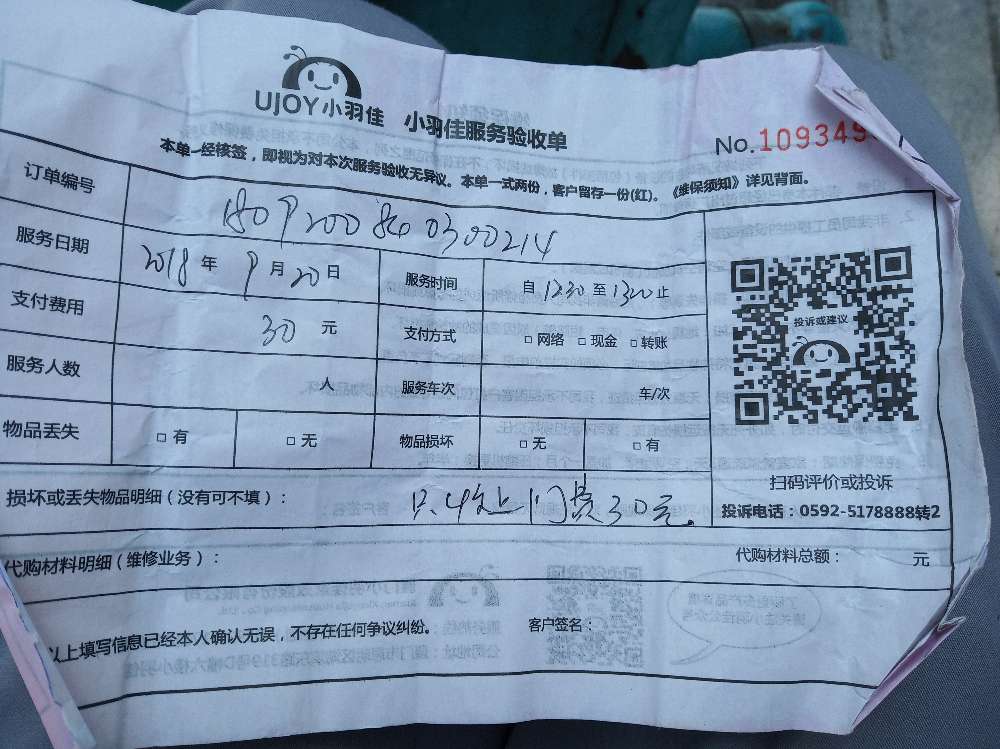 UJOY小羽佳 小羽佳服务验收单
No.109349
本单一经核签，即视为对本次服务验收无异议。本单一式两份，客户留存一份(红)。《维保须知》详见背面。
订单编号
服务日期 2018 年 9 月 20 日 服务时间 自 1230 至 1320 止
支付费用 30 元 支付方式 □ 网络 □ 现金 □ 转账
服务人数 人 服务车次 车/次
物品丢失 □ 有 □ 无 物品损坏 □ 无 □ 有
投诉或建议
扫码评价或投诉
投诉电话：0592-5178888转2
损坏或丢失物品明细（没有可不填）： 只收上门费30元
代购材料明细（维修业务）： 代购材料总额： 元
以上填写信息已经本人确认无误，不存在任何争议纠纷。 客户签名：